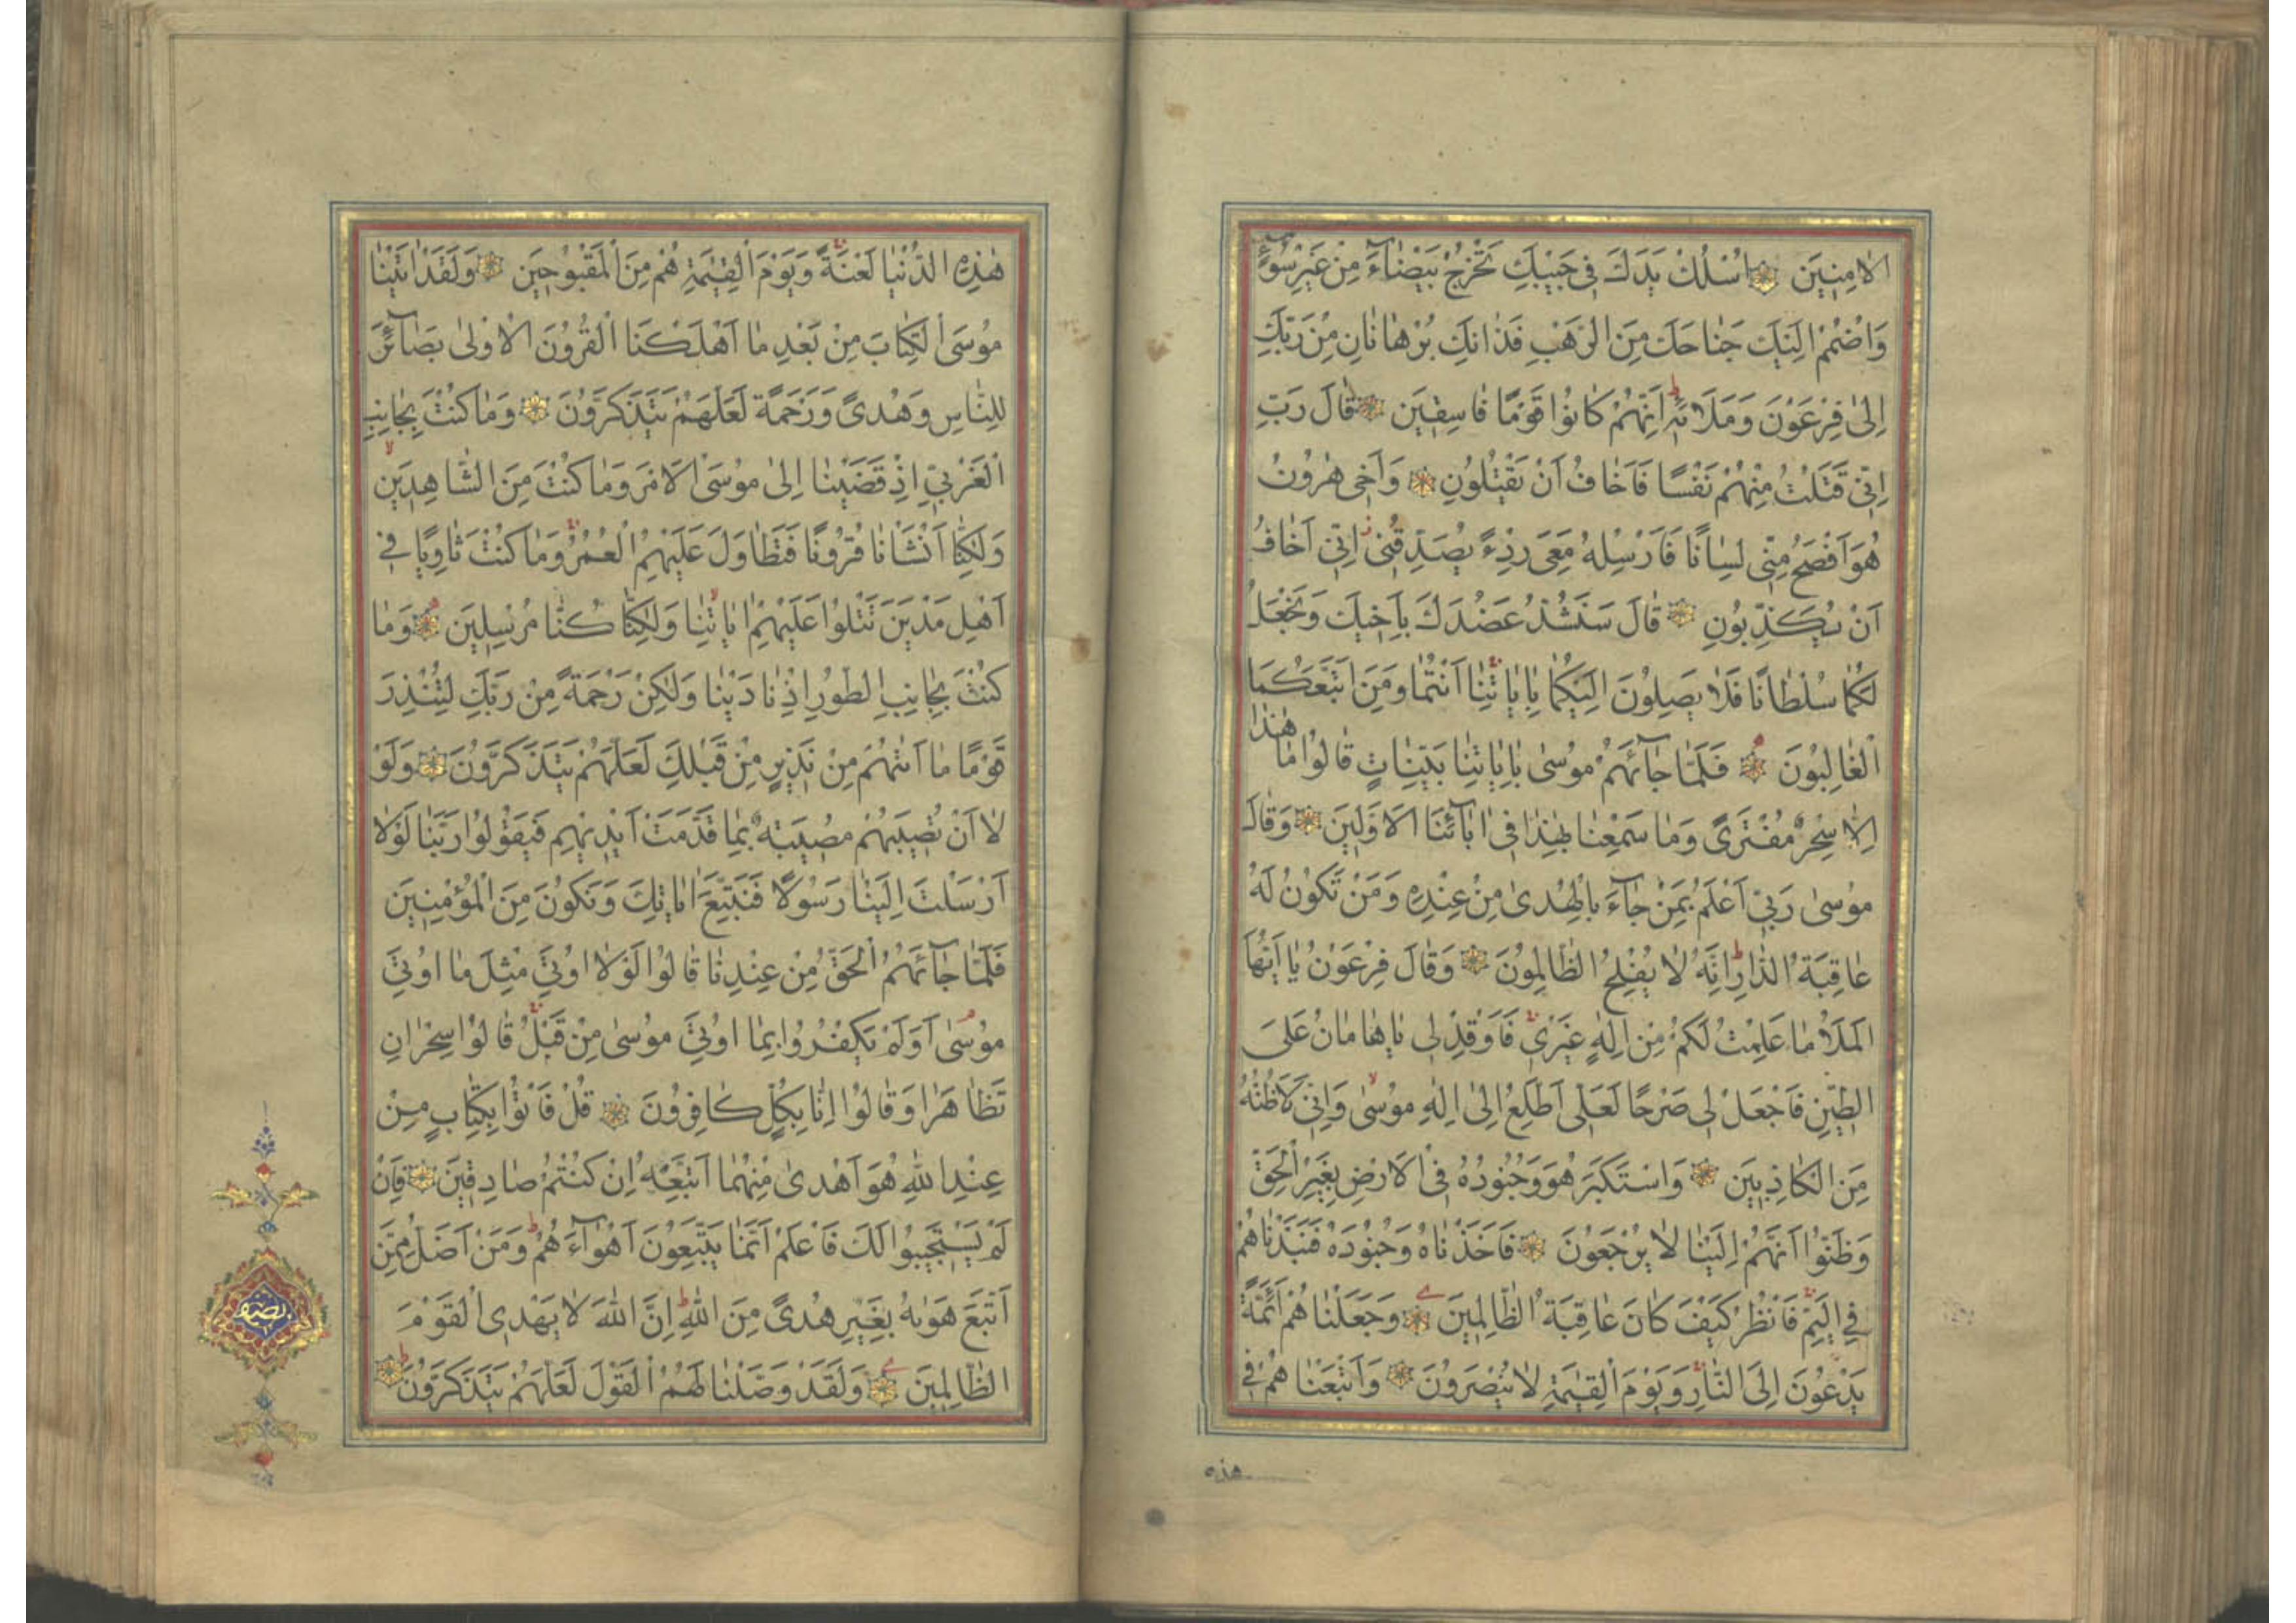 الْاٰمِنِينَ اُسْلُكْ يَدَكَ فِي جَيْبِكَ تَخْرُجْ بَيْضَاءَ مِنْ غَيْرِ سُوءٍ
وَاضْمُمْ اِلَيْكَ جَنَاحَكَ مِنَ الرَّهْبِ فَذَانِكَ بُرْهَانَانِ مِنْ رَبِّكَ
اِلىٰ فِرْعَوْنَ وَمَلَائِهِ اِنَّهُمْ كَانُوا قَوْمًا فَاسِقِينَ قَالَ رَبِّ
اِنِّي قَتَلْتُ مِنْهُمْ نَفْسًا فَاَخَافُ اَنْ يَقْتُلُونِ وَاَخِي هٰرُونُ
هُوَ اَفْصَحُ مِنِّي لِسَانًا فَاَرْسِلْهُ مَعِيَ رِدْءً يُصَدِّقُنِي اِنِّي اَخَافُ
اَنْ يُكَذِّبُونِ قَالَ سَنَشُدُّ عَضُدَكَ بِاَخِيكَ وَنَجْعَلُ
لَكُمَا سُلْطَانًا فَلَا يَصِلُونَ اِلَيْكُمَا بِاٰيَاتِنَا اَنْتُمَا وَمَنِ اتَّبَعَكُمَا
الْغَالِبُونَ فَلَمَّا جَاءَهُمْ مُوسىٰ بِاٰيَاتِنَا بَيِّنَاتٍ قَالُوا مَا هٰذَا
اِلَّا سِحْرٌ مُفْتَرًى وَمَا سَمِعْنَا بِهٰذَا فِي اٰبَائِنَا الْاَوَّلِينَ وَقَالَ
مُوسىٰ رَبِّي اَعْلَمُ بِمَنْ جَاءَ بِالْهُدىٰ مِنْ عِنْدِهِ وَمَنْ تَكُونُ لَهُ
عَاقِبَةُ الدَّارِ اِنَّهُ لَا يُفْلِحُ الظَّالِمُونَ وَقَالَ فِرْعَوْنُ يَا اَيُّهَا
الْمَلَاُ مَا عَلِمْتُ لَكُمْ مِنْ اِلٰهٍ غَيْرِي فَاَوْقِدْ لِي يَا هَامَانُ عَلَى
الطِّينِ فَاجْعَلْ لِي صَرْحًا لَعَلِّي اَطَّلِعُ اِلىٰ اِلٰهِ مُوسىٰ وَاِنِّي لَاَظُنُّهُ
مِنَ الْكَاذِبِينَ وَاسْتَكْبَرَ هُوَ وَجُنُودُهُ فِي الْاَرْضِ بِغَيْرِ الْحَقِّ
وَظَنُّوا اَنَّهُمْ اِلَيْنَا لَا يُرْجَعُونَ فَاَخَذْنَاهُ وَجُنُودَهُ فَنَبَذْنَاهُمْ
فِي الْيَمِّ فَانْظُرْ كَيْفَ كَانَ عَاقِبَةُ الظَّالِمِينَ وَجَعَلْنَاهُمْ اَئِمَّةً
يَدْعُونَ اِلَى النَّارِ وَيَوْمَ الْقِيٰمَةِ لَا يُنْصَرُونَ وَاَتْبَعْنَاهُمْ فِي
هذه
هٰذِهِ الدُّنْيَا لَعْنَةً وَيَوْمَ الْقِيٰمَةِ هُمْ مِنَ الْمَقْبُوحِينَ وَلَقَدْ اٰتَيْنَا
مُوسَى الْكِتَابَ مِنْ بَعْدِ مَا اَهْلَكْنَا الْقُرُونَ الْاُولىٰ بَصَائِرَ
لِلنَّاسِ وَهُدًى وَرَحْمَةً لَعَلَّهُمْ يَتَذَكَّرُونَ وَمَا كُنْتَ بِجَانِبِ
الْغَرْبِيِّ اِذْ قَضَيْنَا اِلىٰ مُوسَى الْاَمْرَ وَمَا كُنْتَ مِنَ الشَّاهِدِينَ
وَلٰكِنَّا اَنْشَاْنَا قُرُونًا فَتَطَاوَلَ عَلَيْهِمُ الْعُمُرُ وَمَا كُنْتَ ثَاوِيًا فِي
اَهْلِ مَدْيَنَ تَتْلُوا عَلَيْهِمْ اٰيَاتِنَا وَلٰكِنَّا كُنَّا مُرْسِلِينَ وَمَا
كُنْتَ بِجَانِبِ الطُّورِ اِذْ نَادَيْنَا وَلٰكِنْ رَحْمَةً مِنْ رَبِّكَ لِتُنْذِرَ
قَوْمًا مَا اَتٰيهُمْ مِنْ نَذِيرٍ مِنْ قَبْلِكَ لَعَلَّهُمْ يَتَذَكَّرُونَ وَلَوْ
لَا اَنْ تُصِيبَهُمْ مُصِيبَةٌ بِمَا قَدَّمَتْ اَيْدِيهِمْ فَيَقُولُوا رَبَّنَا لَوْلَا
اَرْسَلْتَ اِلَيْنَا رَسُولًا فَنَتَّبِعَ اٰيَاتِكَ وَنَكُونَ مِنَ الْمُؤْمِنِينَ
فَلَمَّا جَاءَهُمُ الْحَقُّ مِنْ عِنْدِنَا قَالُوا لَوْلَا اُوتِيَ مِثْلَ مَا اُوتِيَ
مُوسىٰ اَوَلَمْ يَكْفُرُوا بِمَا اُوتِيَ مُوسىٰ مِنْ قَبْلُ قَالُوا سِحْرَانِ
تَظَاهَرَا وَقَالُوا اِنَّا بِكُلٍّ كَافِرُونَ قُلْ فَاْتُوا بِكِتَابٍ مِنْ
عِنْدِ اللهِ هُوَ اَهْدىٰ مِنْهُمَا اَتَّبِعْهُ اِنْ كُنْتُمْ صَادِقِينَ فَاِنْ
لَمْ يَسْتَجِيبُوا لَكَ فَاعْلَمْ اَنَّمَا يَتَّبِعُونَ اَهْوَاءَهُمْ وَمَنْ اَضَلُّ مِمَّنِ
اتَّبَعَ هَوٰيهُ بِغَيْرِ هُدًى مِنَ اللهِ اِنَّ اللهَ لَا يَهْدِي الْقَوْمَ
الظَّالِمِينَ وَلَقَدْ وَصَّلْنَا لَهُمُ الْقَوْلَ لَعَلَّهُمْ يَتَذَكَّرُونَ